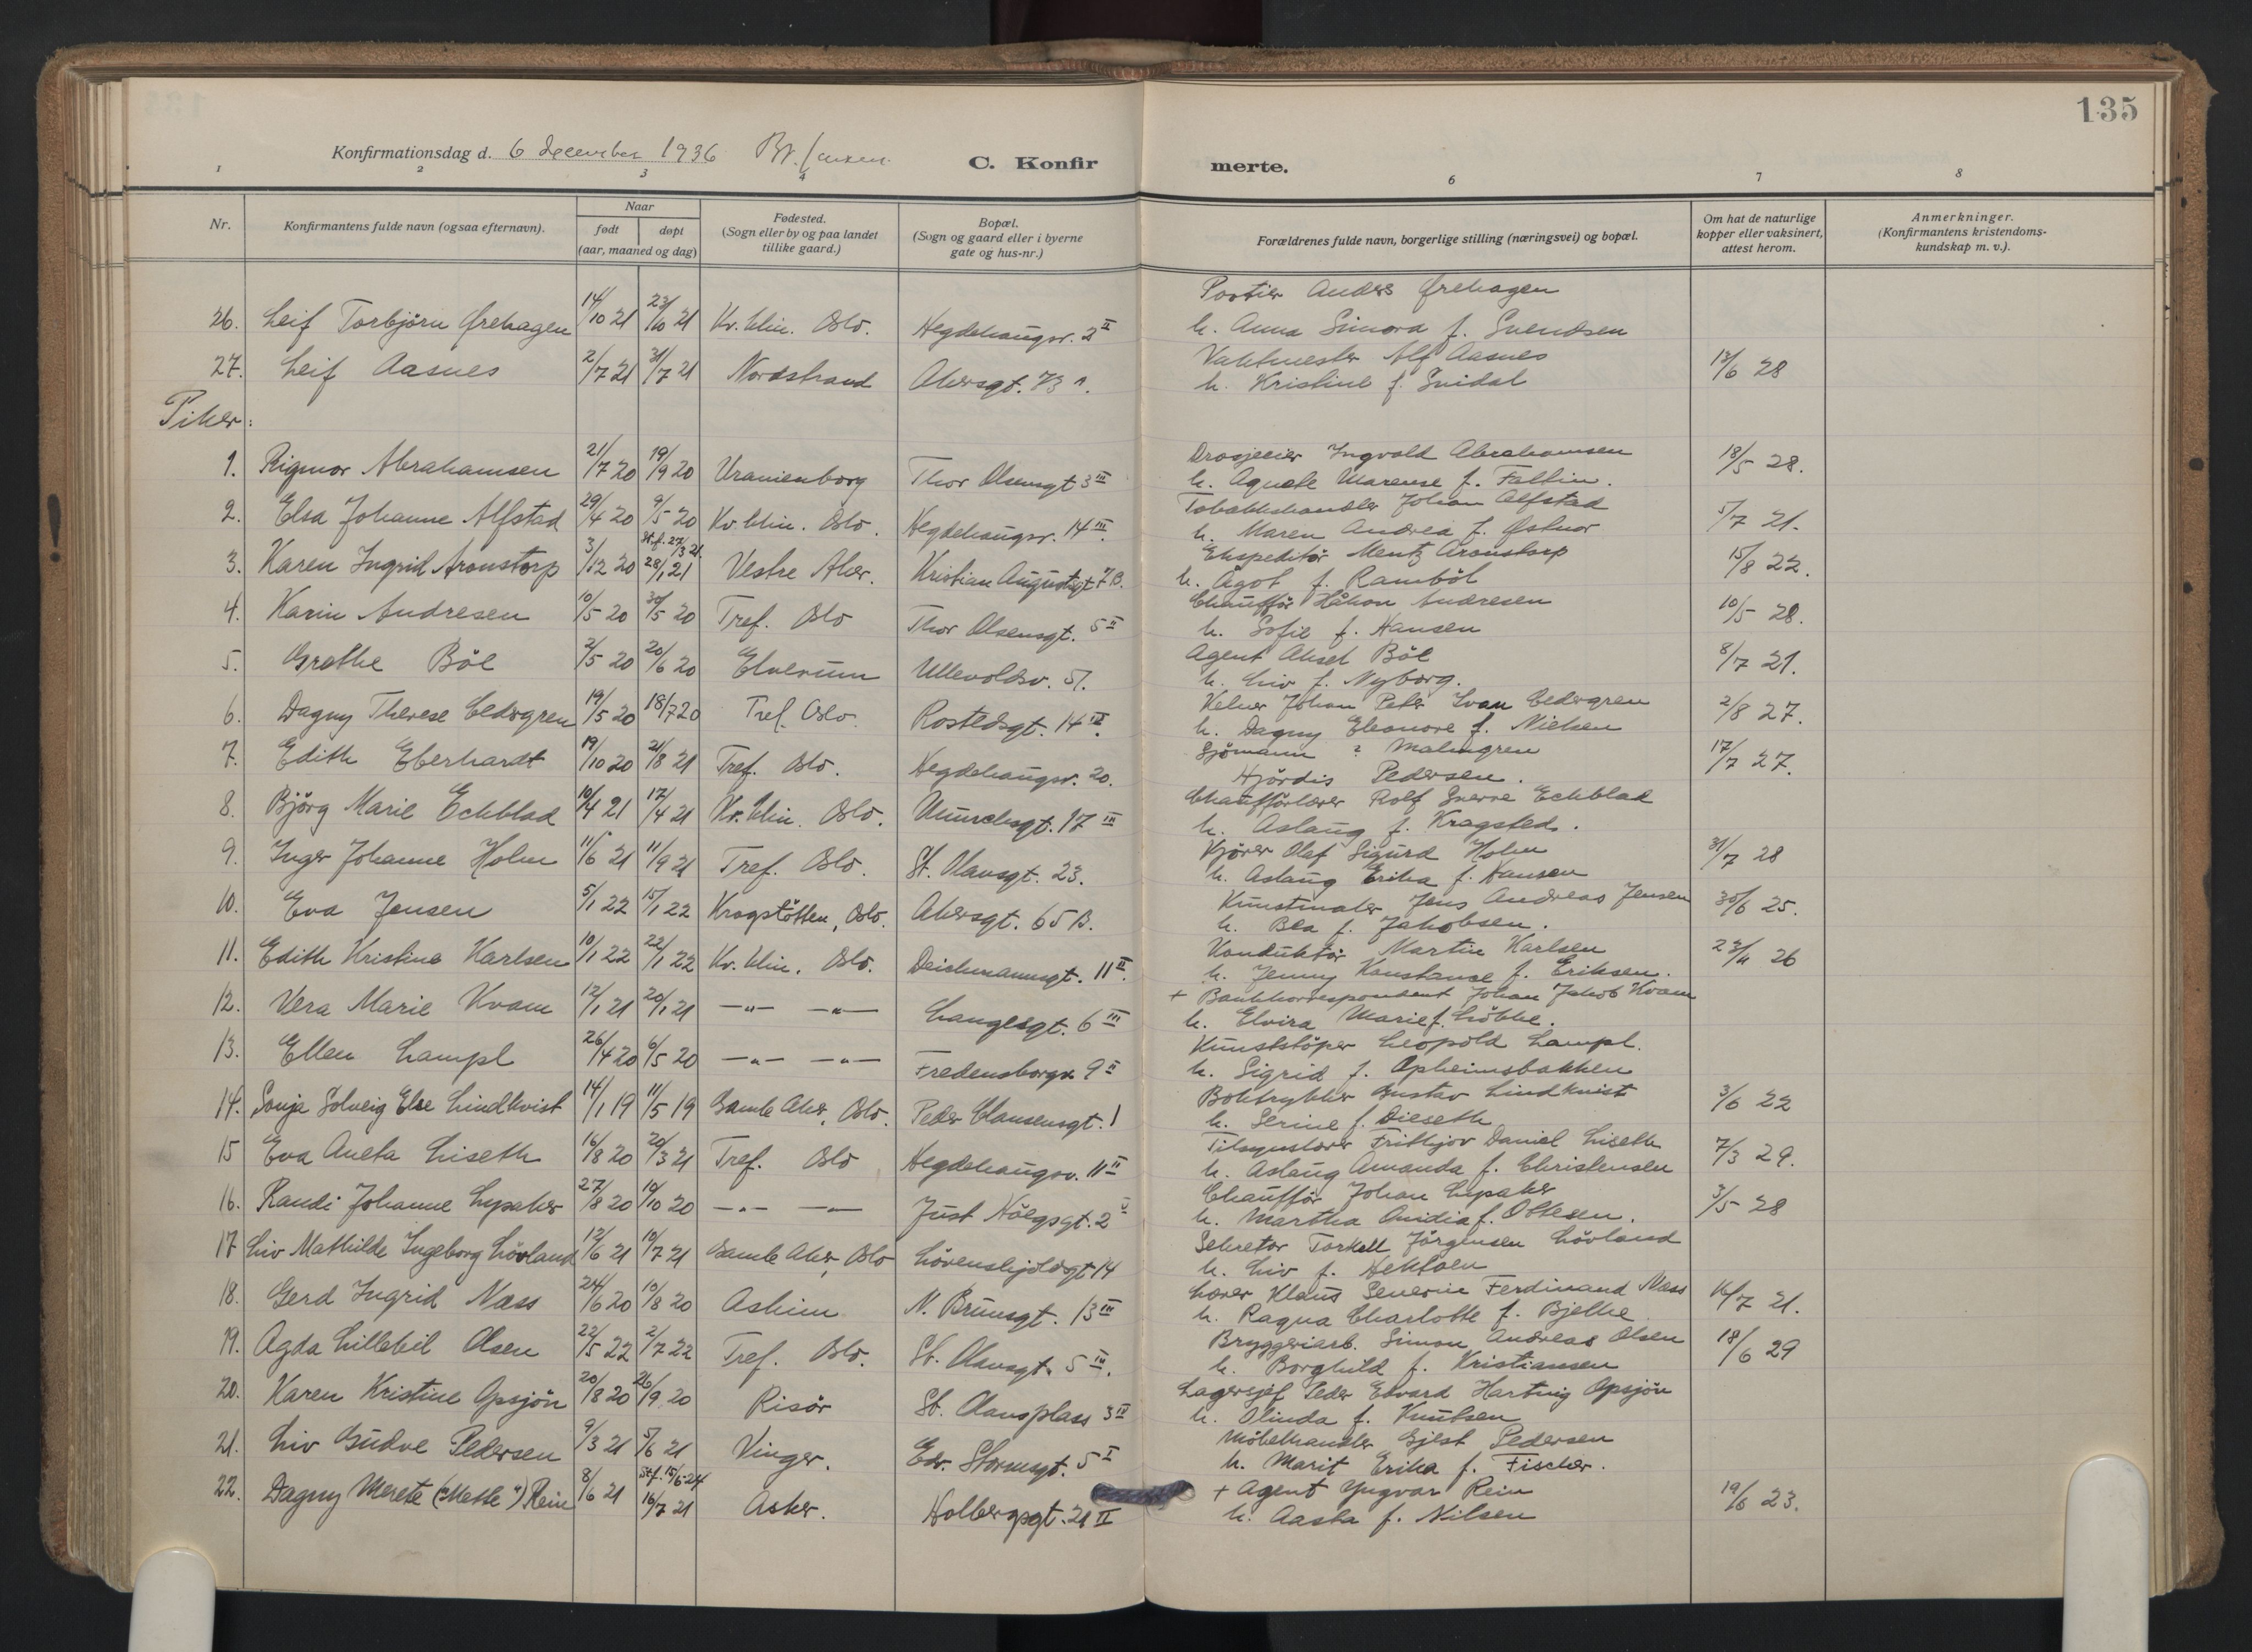 135
Konfirmationsdag d. 6 december 1936
C. Konfirmerte.
1 2 3 4 6 7 8
Nr.
Konfirmantens fulde navn (ogsaa efternavn).
Naar
født døpt
(aar, maaned og dag)
Fødested.
(Sogn eller by og paa landet
tillike gaard.)
Bopæl.
(Sogn og gaard eller i byerne
gate og hus-nr.)
Forældrenes fulde navn, borgerlige stilling (næringsvei) og bopæl.
Om hat de naturlige
kopper eller vaksinert,
attest herom.
Anmerkninger.
(Konfirmantens kristendoms-
kundskap m. v.).
Portier Anders Ørehagen
26. Leif Torbjörn Ørehagen 14/10 21 23/10 21 Kv. klin. Oslo. Hegdehaugsv. 2 II
h. Anna Simora f. Svendsen
Vaktmester Alf Aasnes
27. Leif Aasnes 2/7 21 31/7 21 Nordstrand Akersgt. 73 13/6 28
h. Kristine f. Snidal
Piker:
Drosjeeier Ingvald Abrahamsen
1. Rigmor Abrahamsen 21/7 20 19/9 20 Uranienborg Thor Olsensgt 3 III 18/5 28.
h. Agnete Marense f. Fallin.
Tobakkshandler Johan Alfstad
2. Elsa Johanne Alfstad 29/4 20 9/5 20 Kv. klin. Oslo. Hegdehaugsv. 14 III 5/7 21.
h. Maren Andrea f. Østmor
St.f. 27/3 21.
Ekspeditör Mentz Aronstorp
3. Karen Ingrid Aronstorp 3/12 20 28/1 21 Vestre Aker. Kristian Augustsgt 7 B. 15/8 22.
h. Ågot f. Ramböl
Chauffør Håkon Andresen
4. Karin Andresen 10/5 20 30/5 20 Tref. Oslo Thor Olsensgt. 5 II 10/5 28.
h. Sofie f. Hansen
Agent Aksel Böe
5. Grethe Böe 2/5 20 20/6 20 Elverum Ullevoldsv. 51. 8/7 21.
h. Liv f. Nyborg.
Kelner Johan Peter Ivan Cedergren
6. Dagny Therese Cedergren 19/5 20 18/7 20 Tref. Oslo. Rostedsgt. 14 IV. 2/8 27.
h. Dagny Eleonore f. Nielsen
Sjömann ? Malmgren
7. Edith Eberhardt 19/10 20 21/8 21 Tref. Oslo. Hegdehaugsv. 20. 17/7 27.
Hjördis Pedersen.
Chauffförlærer Rolf Sverre Eckblad
8. Björg Marie Eckblad 10/4 21 17/4 21 Kv. klin. Oslo. Munchsgt. 17 III
h. Aslaug f. Kragsted.
Kjörer Olaf Sigurd Holm
9. Inger Johanne Holm 11/6 21 11/9 21 Tref. Oslo. St. Olavsgt. 23. 31/7 28
h. Aslaug Erika f. Hansen
Kunstmaler Jens Andreas Jensen
10. Eva Jensen 5/1 22 15/1 22 Kragstötten, Oslo. Akersgt. 65 B. 30/6 25.
h. Bea f. Jakobsen.
Konduktör Martin Karlsen
11. Edith Kristine Karlsen 10/1 22 22/1 22 Kv. klin. Oslo. Deichmannsgt. 11 II. 23/4 26
h. Jenny Konstanse f. Eriksen.
+ Bankkorrespondent Johan Jakob Kvam
12. Vera Marie Kvam 12/1 21 20/1 21 —"— —"— Langesgt. 6 III
h. Elvira Marie f. Lökke.
Kunststöper Leopold Lampl.
13. Ellen Lampl 26/4 20 6/5 20 —"— —"— Fredensborgv. 9 II
h. Sigrid f. Opheimsbakken
Boktrykker Gustav Lindkvist
14. Sonja Solveig Else Lindkvist 14/1 19 11/5 19 Gamle Aker, Oslo. Peder Clausensgt. 1 3/6 22
h. Serine f. Dieseth
Tilsynslærer Frithjov Daniel Liseth
15 Eva Aneta Liseth 16/8 20 20/3 21 Tref. Oslo Hegdehaugsv. 11 II 7/3 29.
h. Aslaug Amanda f. Christensen
Chauffør Johan Lysaker
16. Randi Johanne Lysaker 27/8 20 10/10 20 —"— —"— Just Höegsgt. 2 V 3/5 28
h. Martha Ovidia f. Ottesen.
Sekretær Torkell Jörgensen Lövland
17 Liv Mathilde Ingeborg Lövland 12/6 21 10/7 21 Gamle Aker, Oslo Lövenskjoldsgt 14
h. Liv f. Hektoen
Lærer Klaus Severin Ferdinand Næss
18. Gerd Ingrid Næss 24/6 20 10/8 20 Askim N. Brunsgt. 13 III 16/7 21.
h. Ragna Charlotte f. Bjelke
Bryggeriarb. Simon Andreas Olsen
19. Agda Lillebil Olsen 22/5 22 2/7 22 Tref. Oslo. St. Olavsgt. 5 IV. 18/6 29
h. Borghild f. Kristiansen
Lagersjef Peder Edvard Hartvig Opsjön
20. Karen Kristine Opsjön 20/8 20 26/9 20 Risör St. Olavsplass 3 IV
h. Olinda f. Knutsen
Möbelhandler Gjest Pedersen
21. Liv Gudve Pedersen 9/3 21 5/6 21 Vinger. Edv. Stormsgt. 5 I
h. Marit Erika f. Fischer.
St.f. 15/6-24
+ Agent Yngvar Rein
22. Dagny Merete ("Mette") Rein 8/6 21 16/7 21 Asker. Holbergsgt. 21 II 19/6 23.
h. Aasta f. Nilsen